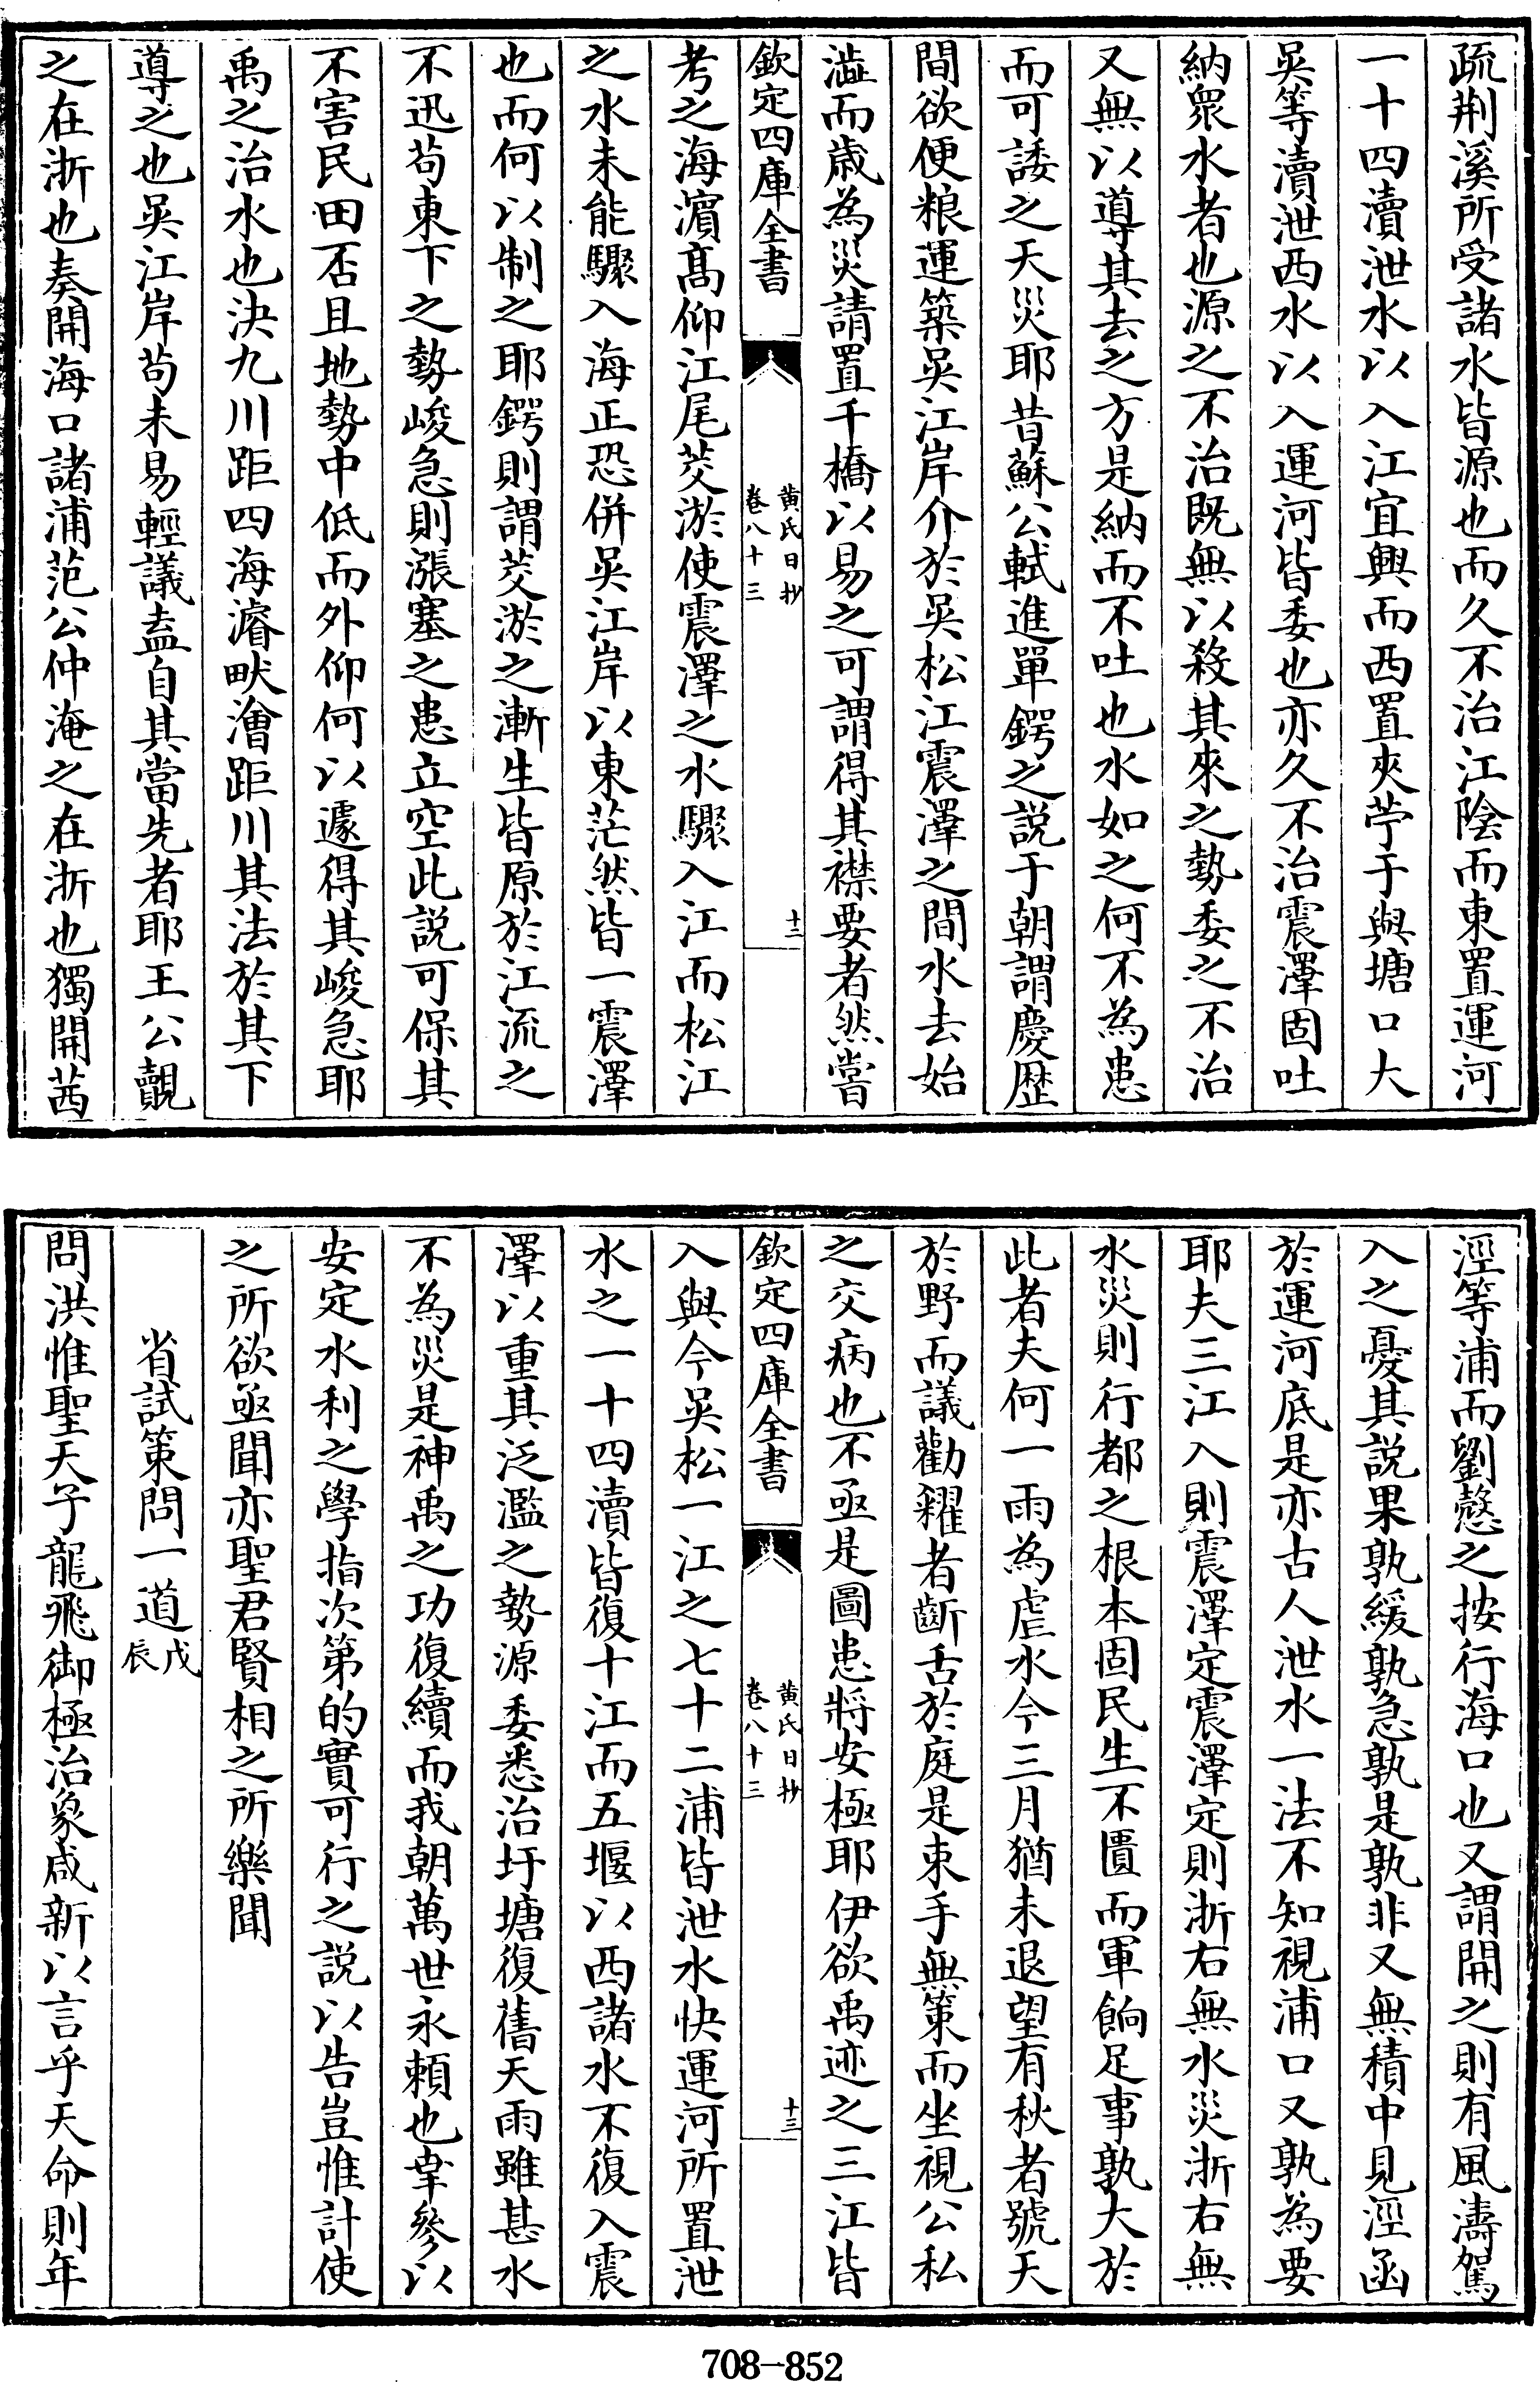 疏荆溪所受諸水皆源也而久不治江陰而東置運河
一十四瀆泄水以入江宜興而西置夾苧于與塘口大
吳等瀆泄西水以入運河皆委也亦久不治震澤固吐
納衆水者也源之不治既無以殺其來之勢委之不治
又無以導其去之方是納而不吐也水如之何不為患
而可諉之天災耶昔蘇公軾進單鍔之說于朝謂慶歴
間欲便粮運築吳江岸介於吳松江震澤之間水去始
澁而歳為災請置千橋以易之可謂得其襟要者然嘗
欽定四庫全書
黄氏日抄
卷八十三
十二
考之海濵髙仰江尾茭淤使震澤之水驟入江而松江
之水未能驟入海正恐併吳江岸以東茫然皆一震澤
也而何以制之耶鍔則謂茭淤之漸生皆原於江流之
不迅茍東下之勢峻急則漲塞之患立空此說可保其
不害民田否且地勢中低而外仰何以遽得其峻急耶
禹之治水也決九川距四海濬畎澮距川其法於其下
導之也吳江岸茍未易輕議盍自其當先者耶王公覿
之在浙也奏開海口諸浦范公仲淹之在浙也獨開茜
涇等浦而劉慤之按行海口也又謂開之則有風濤駕
入之憂其說果孰緩孰急孰是孰非又無積中見涇函
於運河底是亦古人泄水一法不知視浦口又孰為要
耶夫三江入則震澤定震澤定則浙右無水災浙右無
水災則行都之根本固民生不匱而軍餉足事孰大於
此者夫何一雨為虐水今三月猶未退望有秋者號天
於野而議勸糴者齗舌於庭是束手無策而坐視公私
之交病也不亟是圖患將安極耶伊欲禹迹之三江皆
欽定四庫全書
黄氏日抄
卷八十三
十三
入與今吳松一江之七十二浦皆泄水快運河所置泄
水之一十四瀆皆復十江而五堰以西諸水不復入震
澤以重其泛濫之勢源委悉治圩塘復舊天雨雖甚水
不為災是神禹之功復續而我朝萬世永頼也幸參以
安定水利之學指次第的實可行之說以告豈惟計使
之所欲亟聞亦聖君賢相之所樂聞
省試策問一道戊辰
問洪惟聖天子龍飛御極治象咸新以言乎天命則年
708-852